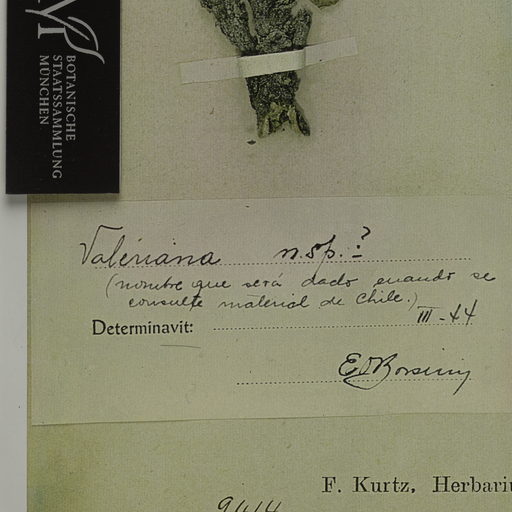 BOTANISCHE
STAATSSAMMLUNG
MÜNCHEN
Valeriana n.sp.?
(nombre que será dado cuando se
consulte material de Chile.)
Determinavit: III-44
F. Kurtz, Herbariu
9414